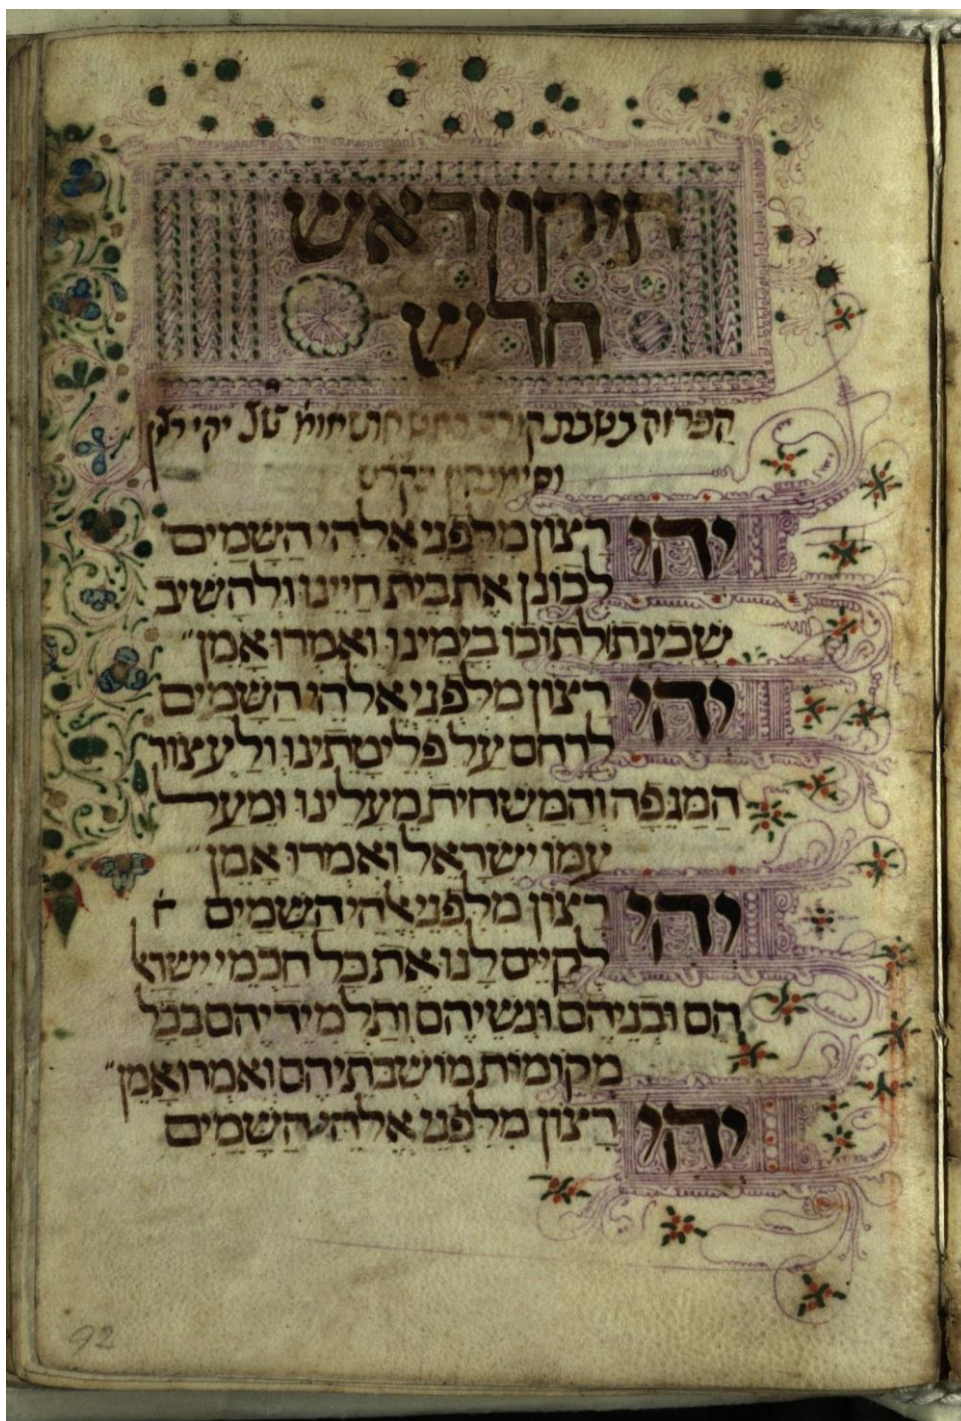 תיקון ראש
חדש
רצון מלפני אלהי השמים
יהי
לכונן את בית חיינו ולהשיב
שכינתו לתוכו בימינו ואמרו אמן
רצון מלפני אלהי השמים
יהי
לרחם על פליטתינו ולעצור
המגפה והמשחית מעלינו ומעל
עמו ישראל ואמרו אמן
רצון מלפני אלהי השמים
יהי
לקיים לנו את כל חכמי
הם ובניהם ונשיהם ותלמידיהם בכל
מקומות מושבתיהם ואמרו אמן
רצון מלפני אלהי השמים
יהי
92